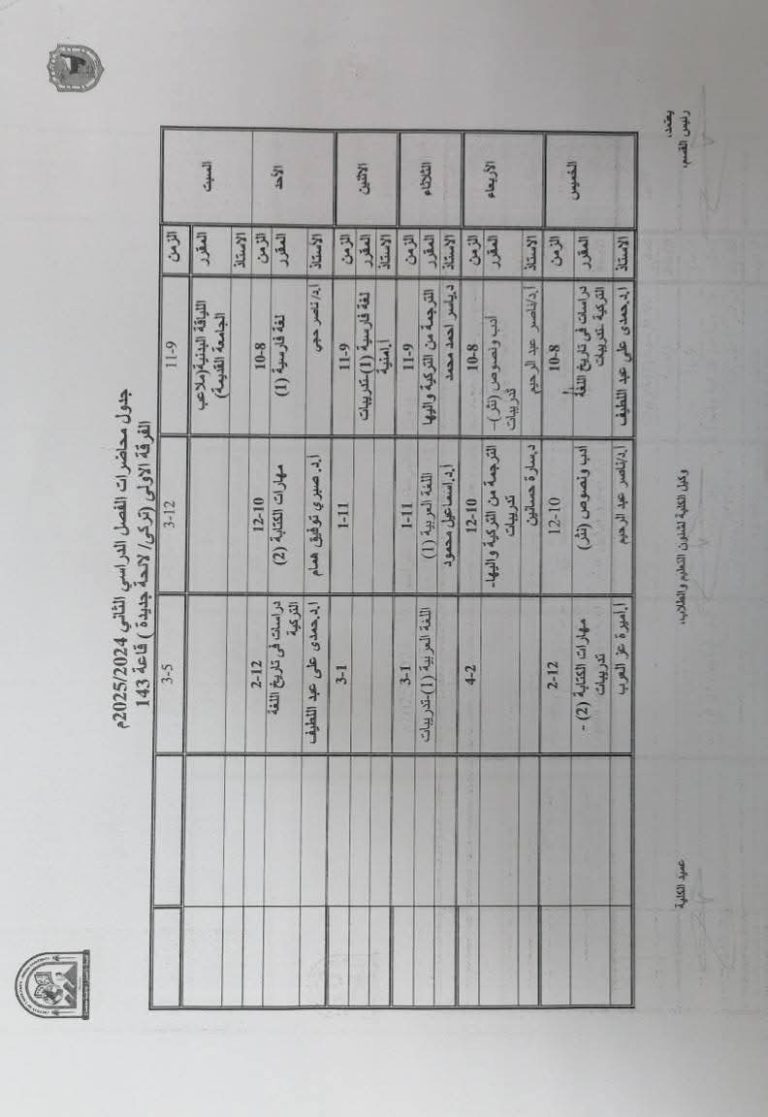 جدول محاضرات الفصل الدراسي الثاني 2025/2024م
الفرقة الاولى (تركى/ لائحة جديدة ) قاعة 143
السبت
الزمن
11-9
3-12
3-5
المقرر
اللياقة البدنية(ملاعب
الجامعة القديمة)
الاستاذ
الأحد
الزمن
10-8
12-10
2-12
المقرر
لغة فارسية (1)
مهارات الكتابة (2)
دراسات فى تاريخ اللغة
التركية
الاستاذ
أ.د/ ناصر حجي
أ.د. صبري توفيق همام
ا.د.حمدى على عبد اللطيف
الاثنين
الزمن
11-9
1-11
3-1
المقرر
لغة فارسية (1)-تدريبات
الاستاذ
أ.أمنية
الثلاثاء
الزمن
11-9
1-11
3-1
المقرر
الترجمة من التركية واليها
اللغة العربية (1)
اللغة العربية (1)-تدريبات
الاستاذ
د.ياسر احمد محمد
أ.د.اسماعيل محمود
الأربعاء
الزمن
10-8
12-10
4-2
المقرر
أدب ونصوص (نثر)–
تدريبات
الترجمة من التركية واليها-
تدريبات
الاستاذ
أ.د/ناصر عبد الرحيم
د.سارة حسانين
الخميس
الزمن
10-8
12-10
2-12
المقرر
دراسات فى تاريخ اللغة
التركية -تدريبات
ادب ونصوص (نثر)
مهارات الكتابة (2) -
تدريبات
الاستاذ
ا.د.حمدى على عبد اللطيف
أ.د/ناصر عبد الرحيم
أ.اميرة عز العرب
يعتمد،
رئيس القسم،
وكيل الكلية لشئون التعليم والطلاب،
عميد الكلية